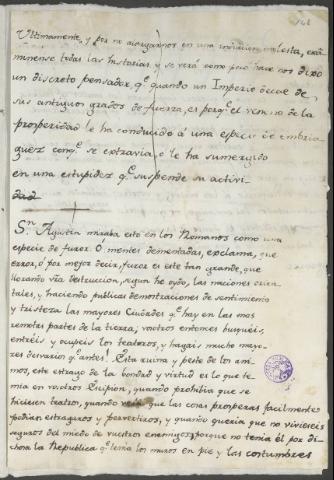 Ultimamente, y por no alargarnos en una erudicion molesta, exa-
minense todas las historias, y se verá como poco hace nos dixo
un discreto pensador, qᵉ quando un Imperio decae de
sus antiguos grados de fuerza, es porqᵉ el veneno de la
prosperidad le ha conducido á una especie de embria
guez con qᵉ se extravia, ó le ha sumergido
en una estupidez qᵉ suspende su activi-
dad
Sⁿ Agustin miraba esto en los Romanos como una
especie de furor. O mentes dementadas, exclama, que
error, ó por mejor decir, furor es este tan grande, que
llorando vᵗʳᵃ destruccion, segun he oydo, las naciones orien
tales, y haciendo públicas demostraciones de sentimiento
y tristeza las mayores Ciudades qᵉ hay en las mas
remotas partes de la tierra; vosotros entonces busqueis,
entréis y ocupeis los teatros, y hagais mucho mayo-
res desvarios qᵉ antes! Esta ruina y peste de los ani-
mos, este estrago de la bondad y virtud es lo que te-
mia en vosotros Escipion, quando prohibia que se
hiciesen teatros, quando veía que las cosas prosperas facilmente
podian estragaros y pervertiros, y quando queria que no vivieseis
seguros del miedo de vuestros enemigos; porque no tenia él por di-
chosa la Republica qᵉ tenia los muros en pie y las costumbres